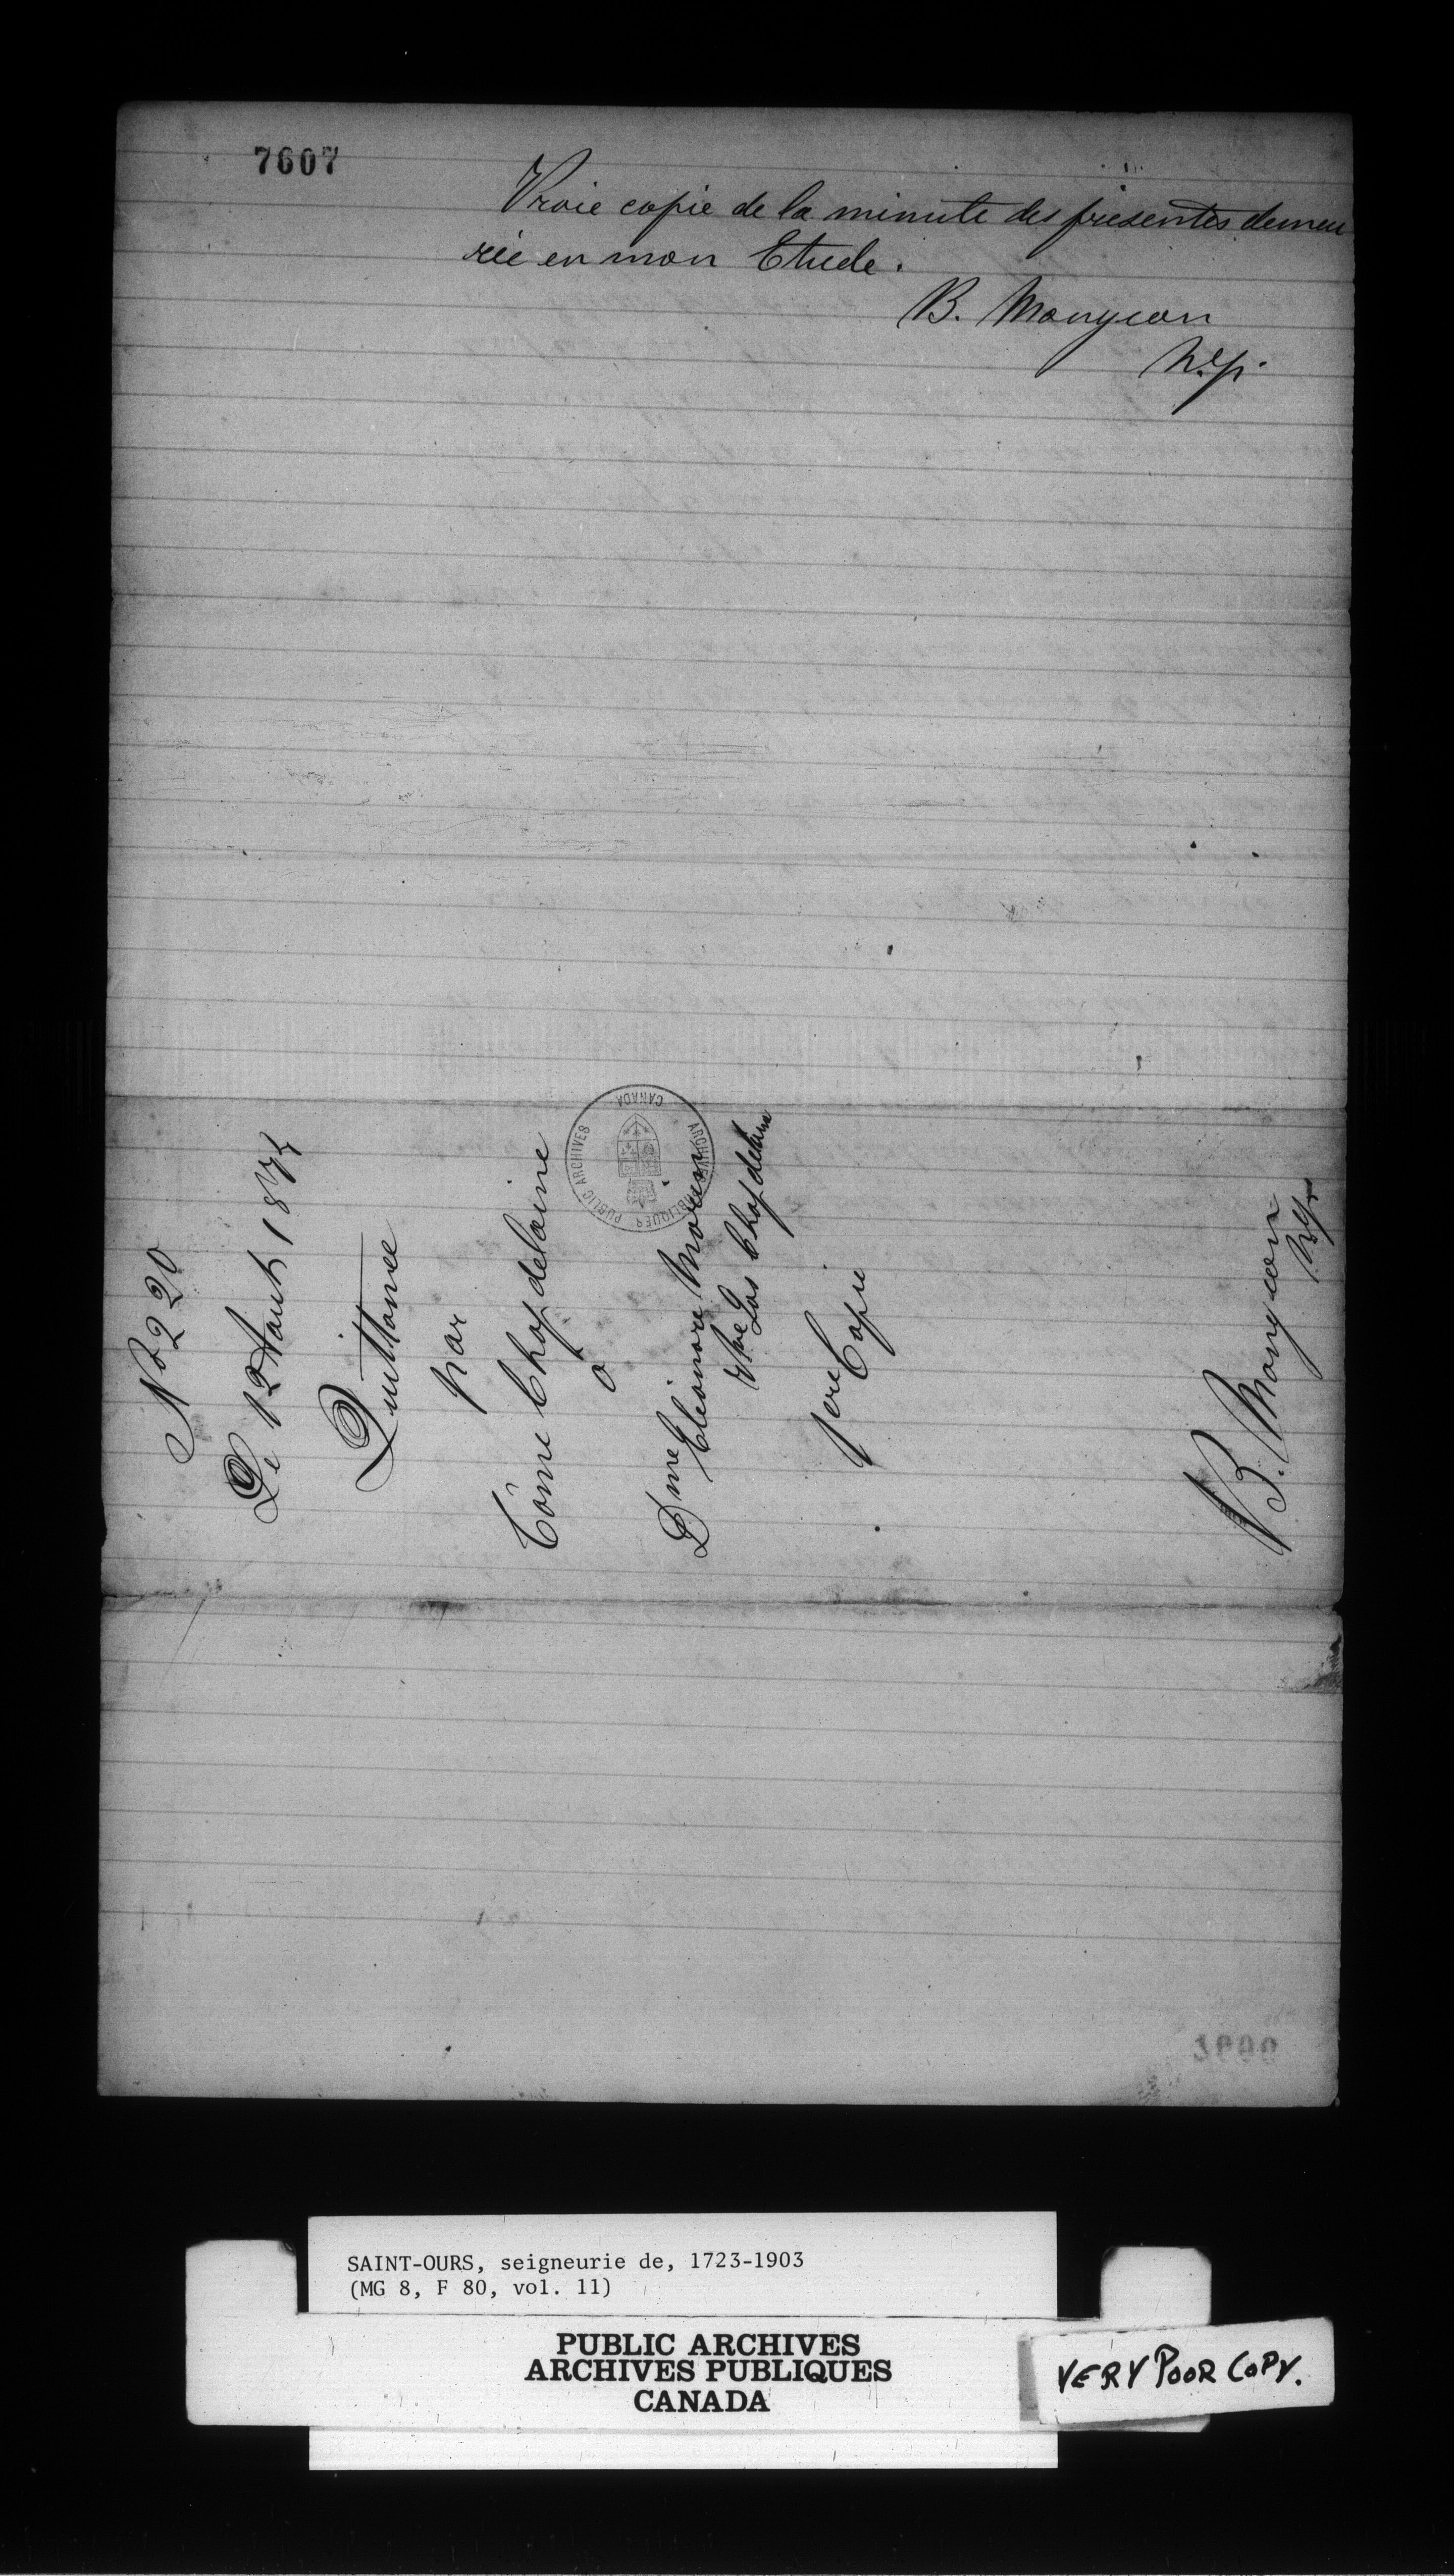 7607
Vraie copie de la minute des présentes demeu
rée en mon Etude.
B. Mongeon
N.P.
No 220
Le 12 Aout 187
Quittance
par
Côme Chapdelaine
a
Dme Eléonore Morin
Vve Jos Chapdelaine
1ere Copie
B. Mongeon
N.P.
PUBLIC ARCHIVES
ARCHIVES PUBLIQUES
CANADA
SAINT-OURS, seigneurie de, 1723-1903
(MG 8, F 80, vol. 11)
PUBLIC ARCHIVES
ARCHIVES PUBLIQUES
CANADA
VERY POOR COPY.